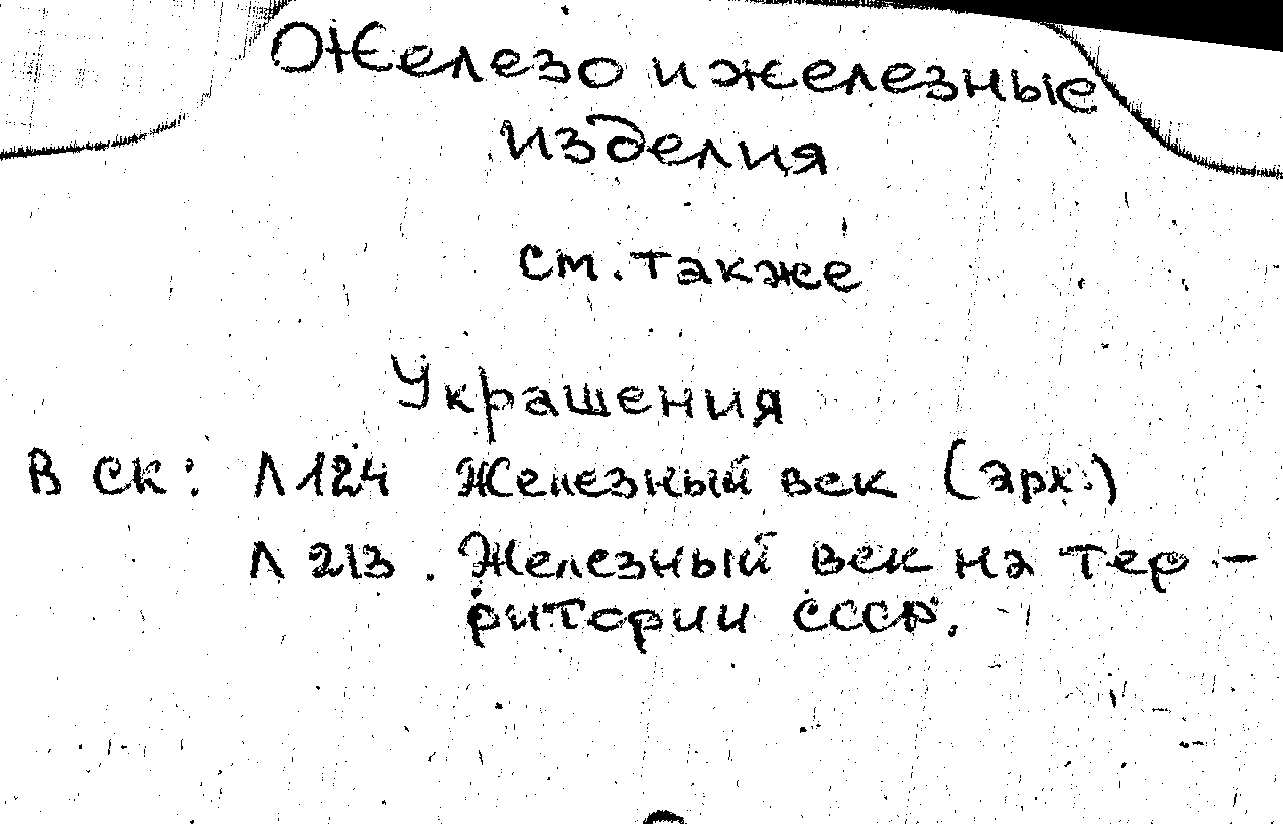 Железо и железные
изделия
см. также
Украшения
В СК: Л 124 Железный век (арх.)
Л 213. Железный век на тер-
ритории СССР.